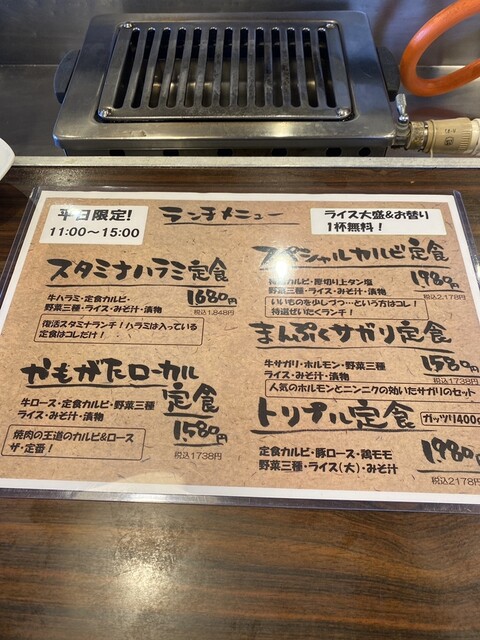 平日限定!
11:00～15:00
ランチメニュー
ライス大盛&お替り
1杯無料!
スタミナハラミ定食
牛ハラミ・定食カルビ・
野菜三種・ライス・みそ汁・漬物
1680円
税込1,848円
復活スタミナランチ!ハラミは入っている
定食はコレだけ!
かもがたローカル
定食
牛ロース・定食カルビ・野菜三種
ライス・みそ汁・漬物
1,580円
税込1738円
焼肉の王道のカルビ&ロース
ザ・定番!
スペシャルカルビ定食
カルビ・厚切り上タン塩
野菜三種・ライス・みそ汁・漬物
1,980円
税込2,178円
いいものを少しづつ…という方はコレ!
特選ぜいたくランチ!
まんぷくサガリ定食
牛サガリ・ホルモン・野菜三種
ライス・みそ汁・漬物
1,580円
税込1738円
人気のホルモンとニンニクの効いたサガリのセット
トリプル定食
ガッツリ400g
定食カルビ・豚ロース・鶏モモ
野菜三種・ライス(大)・みそ汁
1,980円
税込2,178円